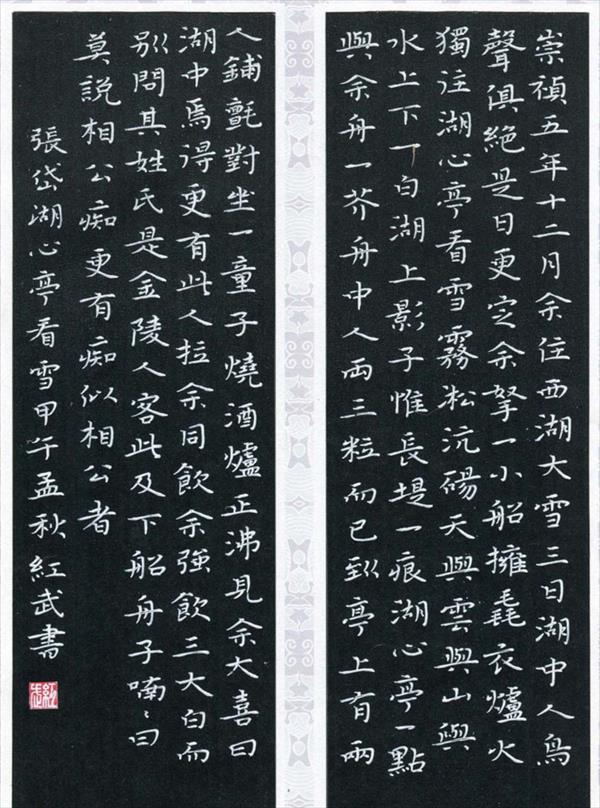 崇禎五年十二月余住西湖大雪三日湖中人鳥
聲俱絕是日更定余拏一小船擁毳衣爐火
獨往湖心亭看雪霧凇沆碭天與雲與山與
水上下一白湖上影子惟長堤一痕湖心亭一點
與余舟一芥舟中人兩三粒而已到亭上有兩
人鋪氈對坐一童子燒酒爐正沸見余大喜曰
湖中焉得更有此人拉余同飲余強飲三大白而
別問其姓氏是金陵人客此及下船舟子喃〻曰
莫說相公痴更有痴似相公者
張岱湖心亭看雪甲午孟秋紅武書